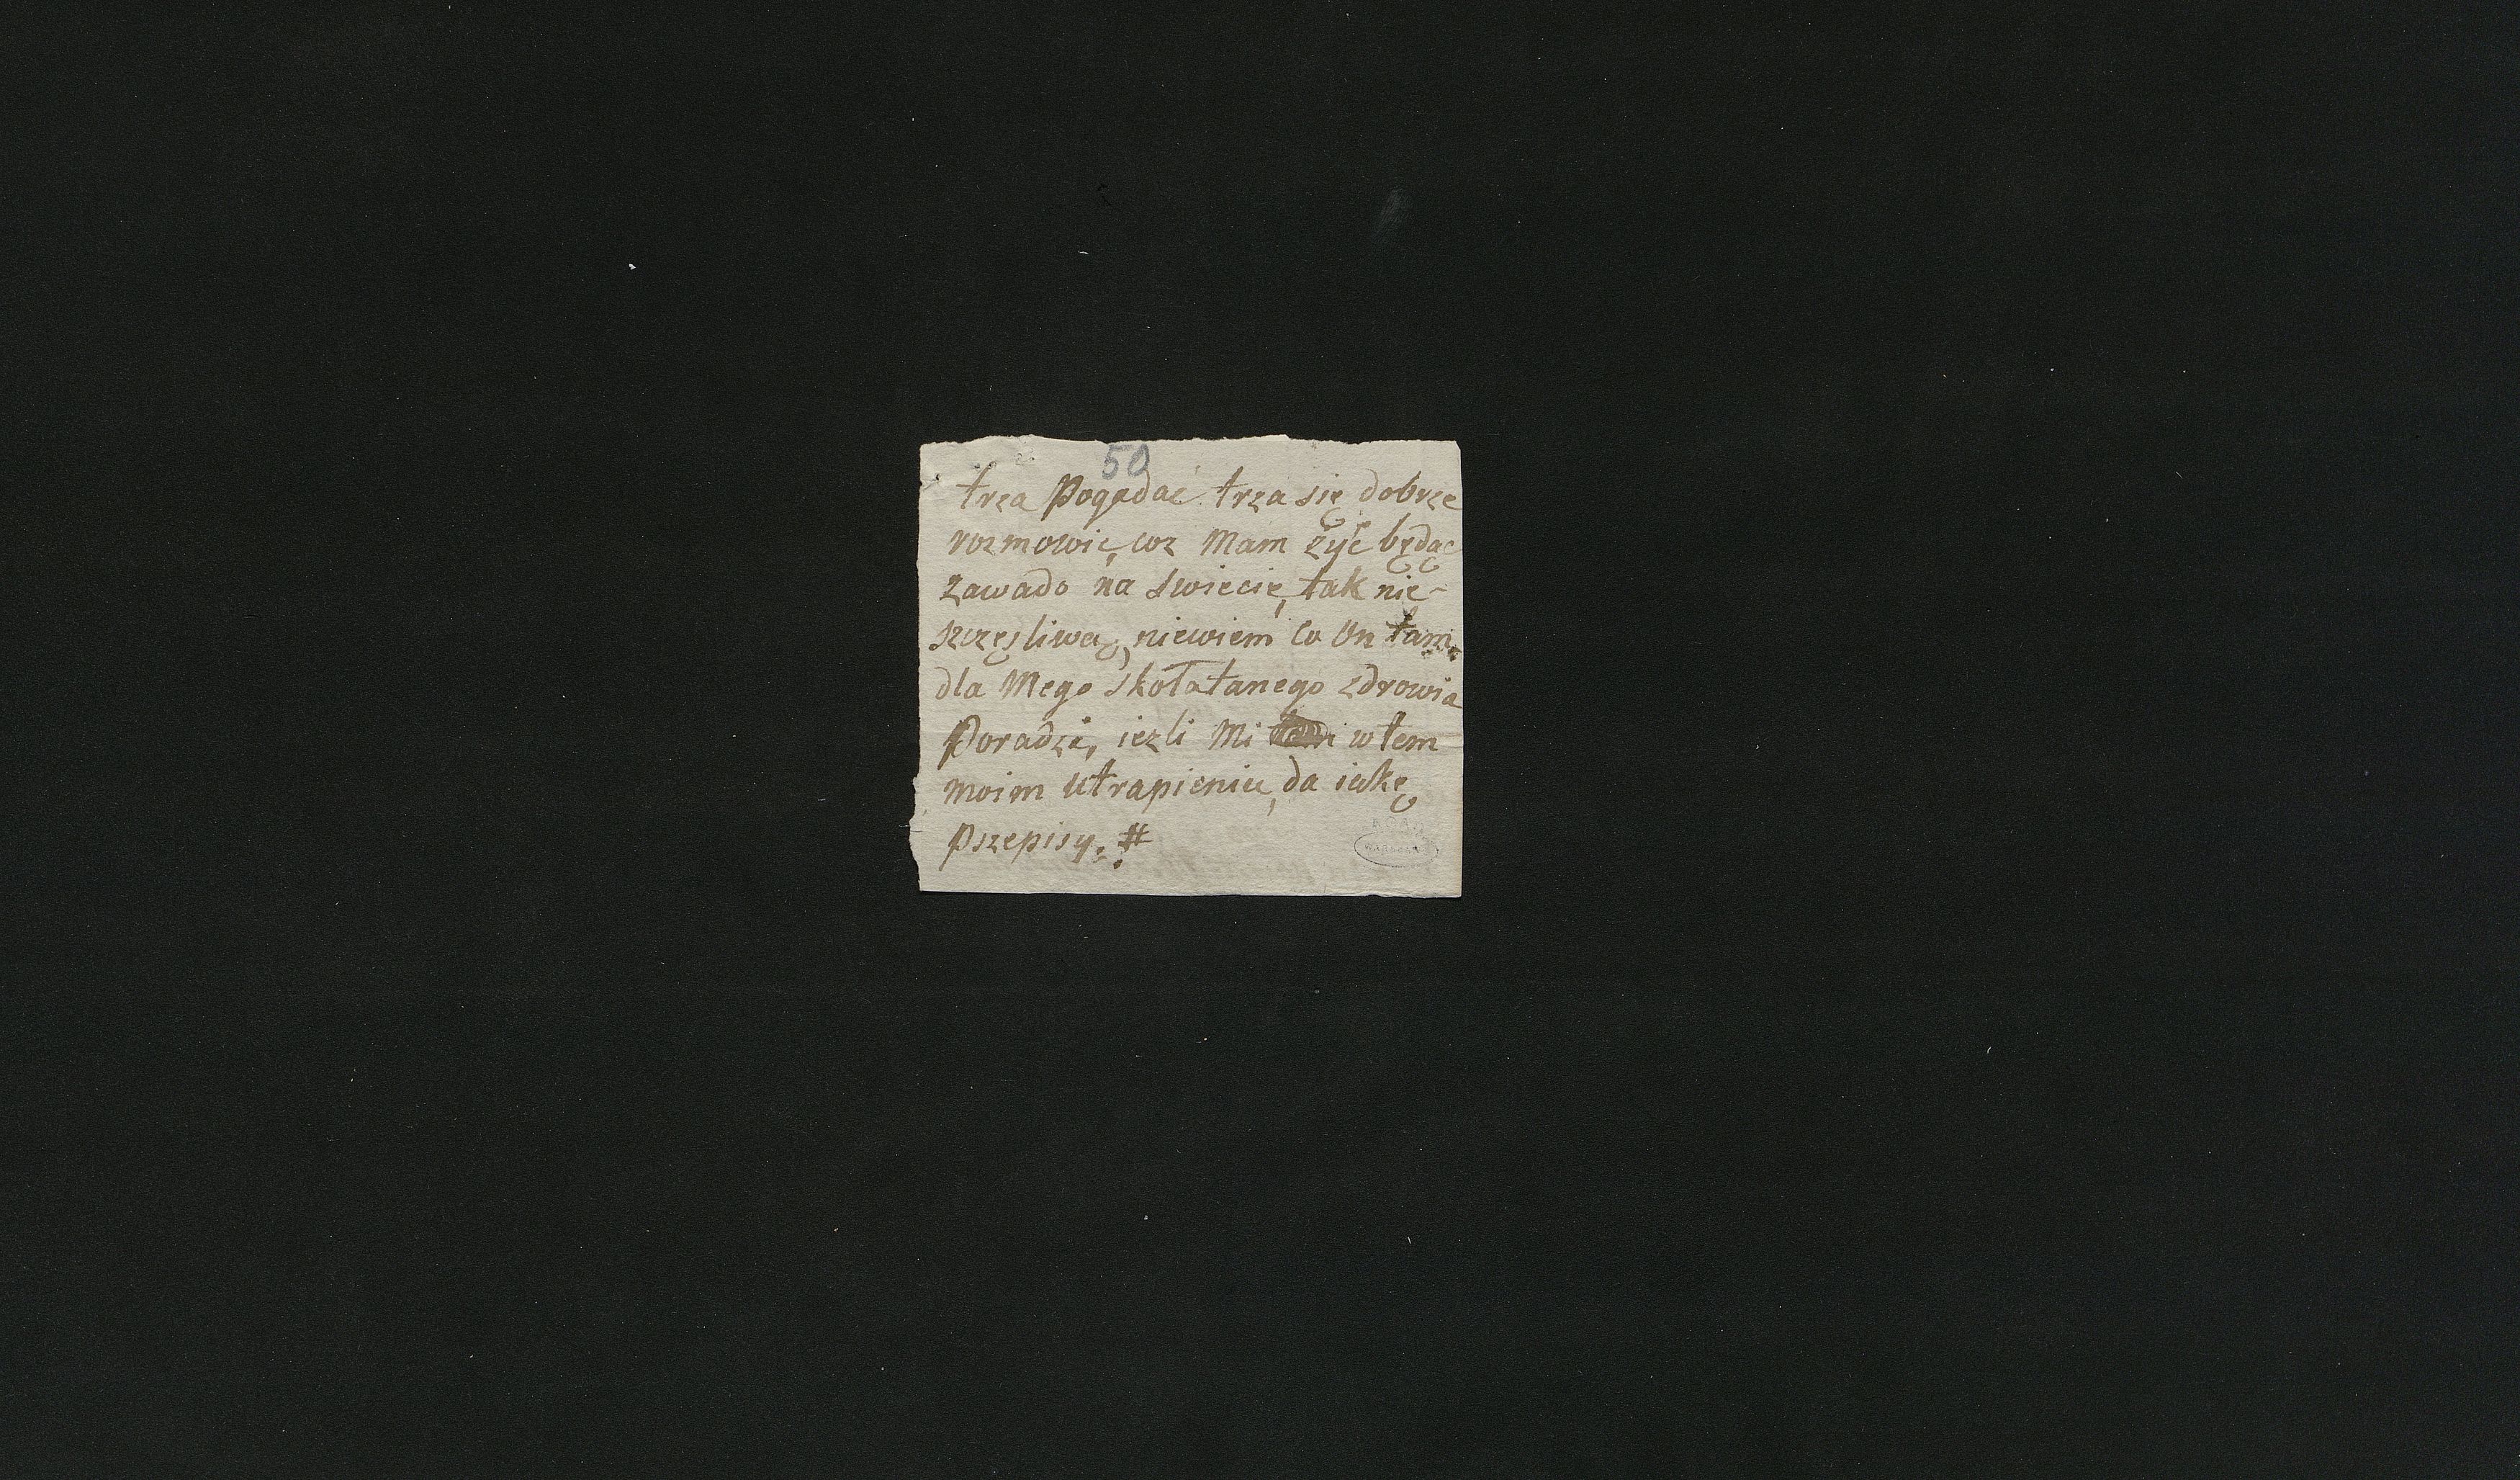 50
trza Pogadać trza się dobrze
rozmowić, coz Mam żyć będąc
zawado na swiecie, tak nie-
szczęsliwą, niewiem co On tam
dla Mego skołatanego zdrowia
Poradzi, iezli Mi w tem
moim utrapieniu, da iakę
pszepisy. #
WARSZAWA